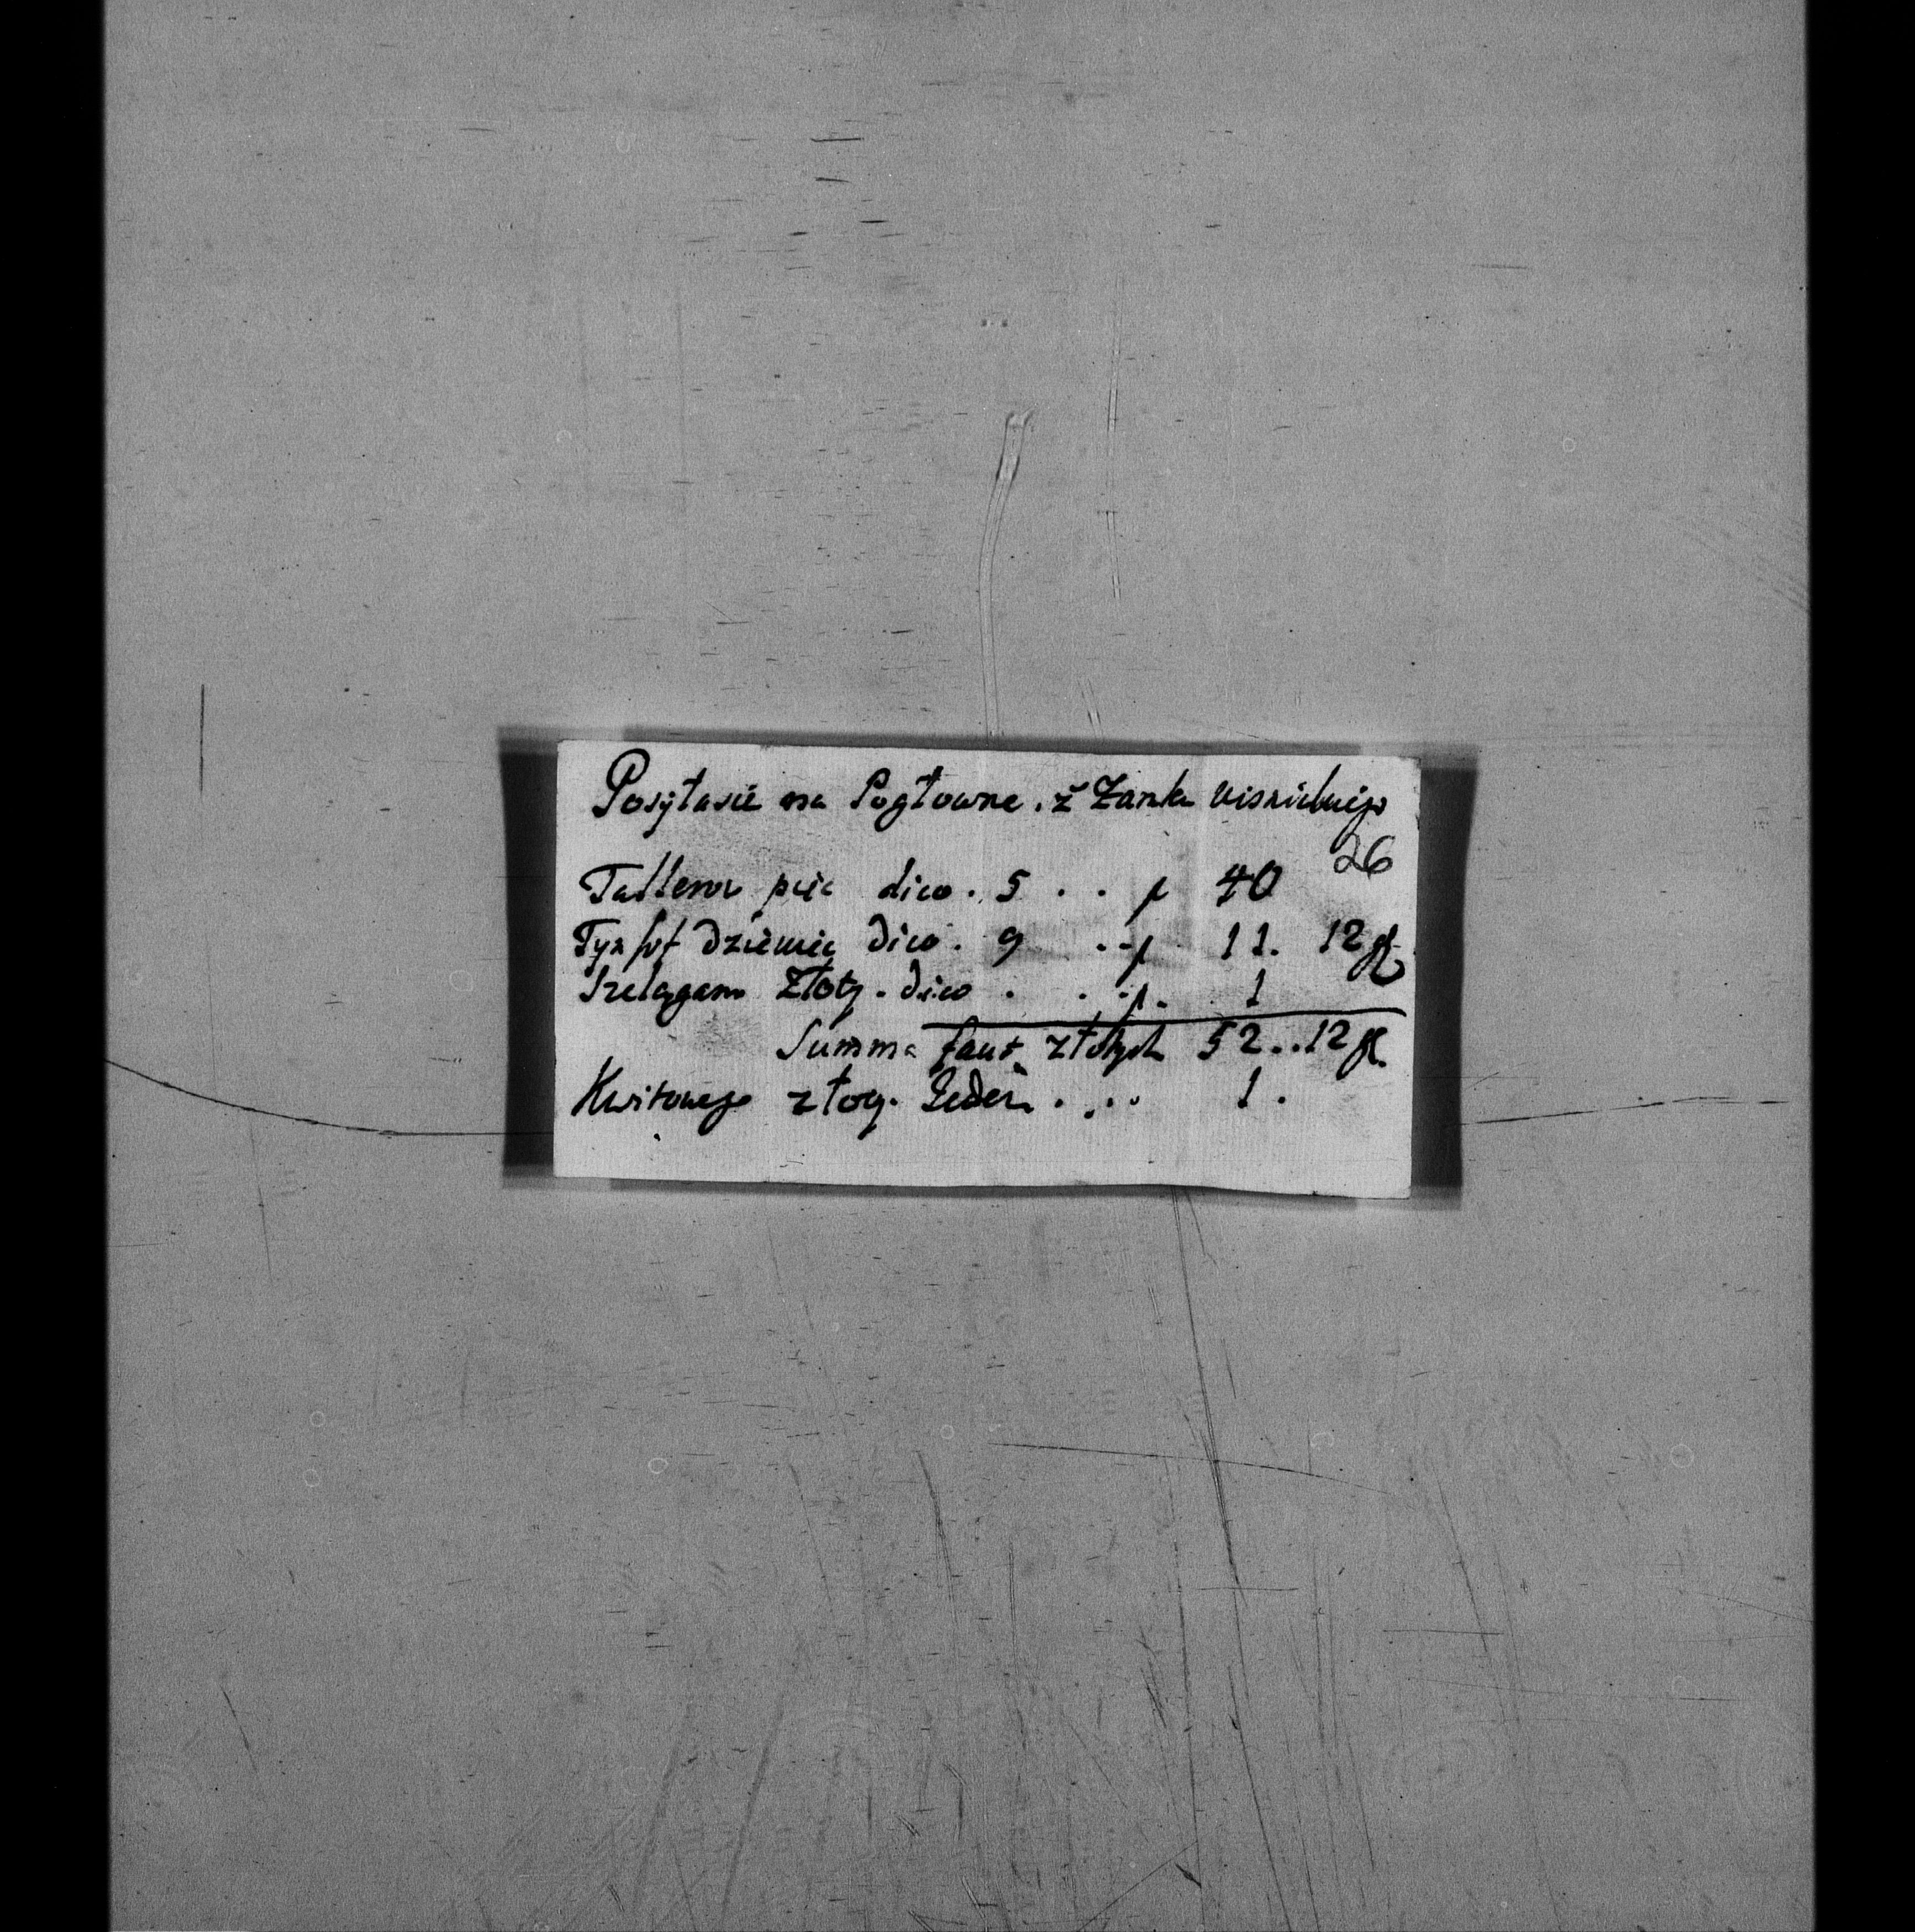 Posyłasie na Pogłowne. z Zamku
26
Tallerow pięć dico. 5 . . f 40
Tynfof dziewię dico. 9 . - f 11. 12 gr
Szelągami Złoty. dico . . - f. 1
Summa złotych 52..12 gr.
Kwitowego złoty. Jeden . . . . 1.